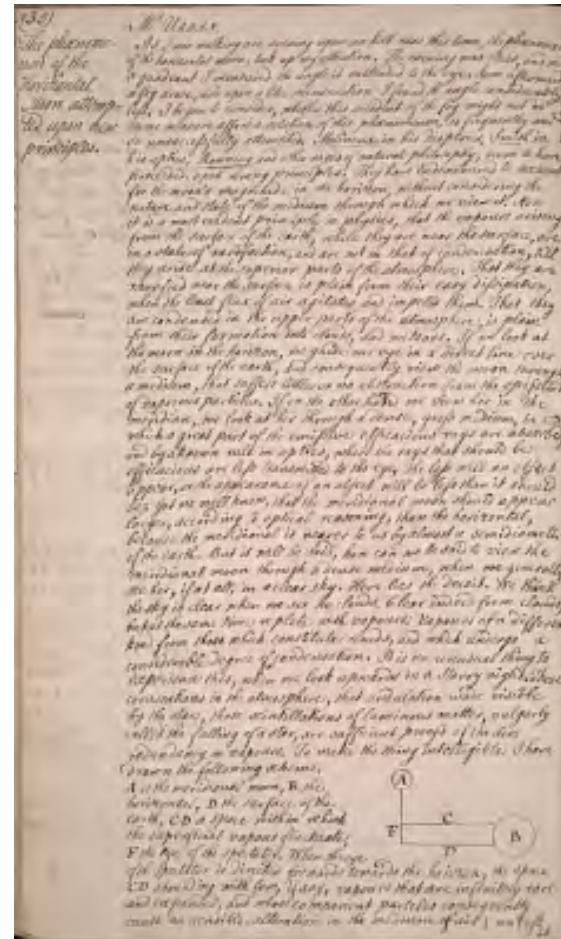 (32)
The phænome-
non of the
horizontal
Moon attemp-
ted upon new
principles.
Mr Urban,
As I was walking one evening upon an hill near this town, the phænomenon
of the horizontal moon, took up my attention. The evening was clear, and with
a quadrant I measured the angle it subtended to the eye. Soon afterwards
a fog arose, and upon a like mensuration I found the angle considerably
less. I began to consider, whether this accident of the fog might not in
some measure afford a solution of this phænomenon, so frequently and
so unsuccessfully attempted. in his dioptrics, Smith in
his optics, Rowning in his system of natural philosophy, seem to have
proceeded upon wrong principles. They have endeavoured to account
for the moon's magnitude in the horizon, without considering the
nature and state of the medium through which we view it. Now
it is a most evident principle in physics, that the vapours arising
from the surface of the earth, while they are near the surface, are
in a state of rarefaction, and are not in that of condensation, till
they arrive at the superior parts of the atmosphere. That they are
rarefied near the surface is plain from their easy dissipation,
when the least flux of air agitates and impells them. That they
are condensed in the upper parts of the atmosphere, is plain
from their formation into clouds, and meteors. If we look at
the moon in the horizon, we guide our eye in a direct line over
the surface of the earth, and consequently view the moon through
a medium, that suffers little or no obstruction from the
of vaporous particles. If on the other hand we view her in the
meridian, we look at her through a dense, gross medium, in
which a great part of the emissive efficacious rays are absorbed
and by a known rule in optics, where the rays that should be
efficacious are less transmitted to the eye, the less will an object
appear, or the appearance of an object will be less than it should
be. Yet we well know, that the meridional moon should appear
larger, according to optical reasoning, than the horizontal,
because the meridional is nearer to us by almost a semidiameter
of the earth. But it will be said, how can we be said to view the
meridional moon through a dense medium, when we generally
see her, if at all, in a clear sky. Here lies the deceit. We think
the sky is clear when we see no clouds. Clear indeed from clouds,
but at the same time replete with vapours; vapours of a different
kind from those which constitute clouds, and which undergo a
considerable degree of condensation. It is no unusual thing to
experience this, when we look upwards in a starry night. These
coruscations in the atmosphere, that undulation visible
by the stars, those scintillations of luminous matter, vulgarly
called the falling of a star, are sufficient proofs of the
redundancy of vapours. To make the thing intelligible I have
drawn the following scheme.
A is the meridional moon, B the
horizontal, D the surface of the
earth, CD a space within which
the superficial vapours fluctuate,
F the eye of the spectator. When the eye
of the spectator is directed forwards towards the horizon, the space
CD abounding with few, if any, vapours that are infinitely rare
and expanded, and whose component particles consequently
cause no sensible alteration in the medium of sight, unless
A
C
F
B
D